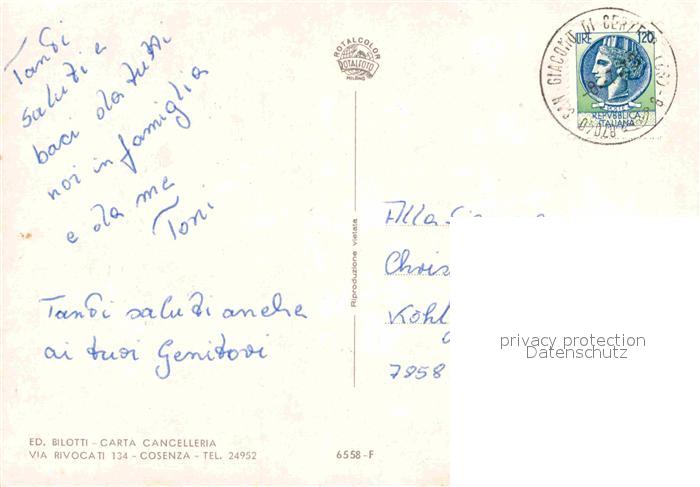 Tanti
saluti e
baci da tutti
noi in famiglia
e da me
Toni
Tanti saluti anche
ai tuoi Genitori
ED. BILOTTI – CARTA CANCELLERIA
VIA RIVOCATI 134 – COSENZA – TEL. 24952
6558-F
Riproduzione vietata
ROTALCOLOR
ROTALFOTO
MILANO
LIRE 120
REPVBBLICA
ITALIANA
SAN GIACOMO DI CERZETO
87040
Alla
Chris
Kohl
7858
privacy protection
Datenschutz